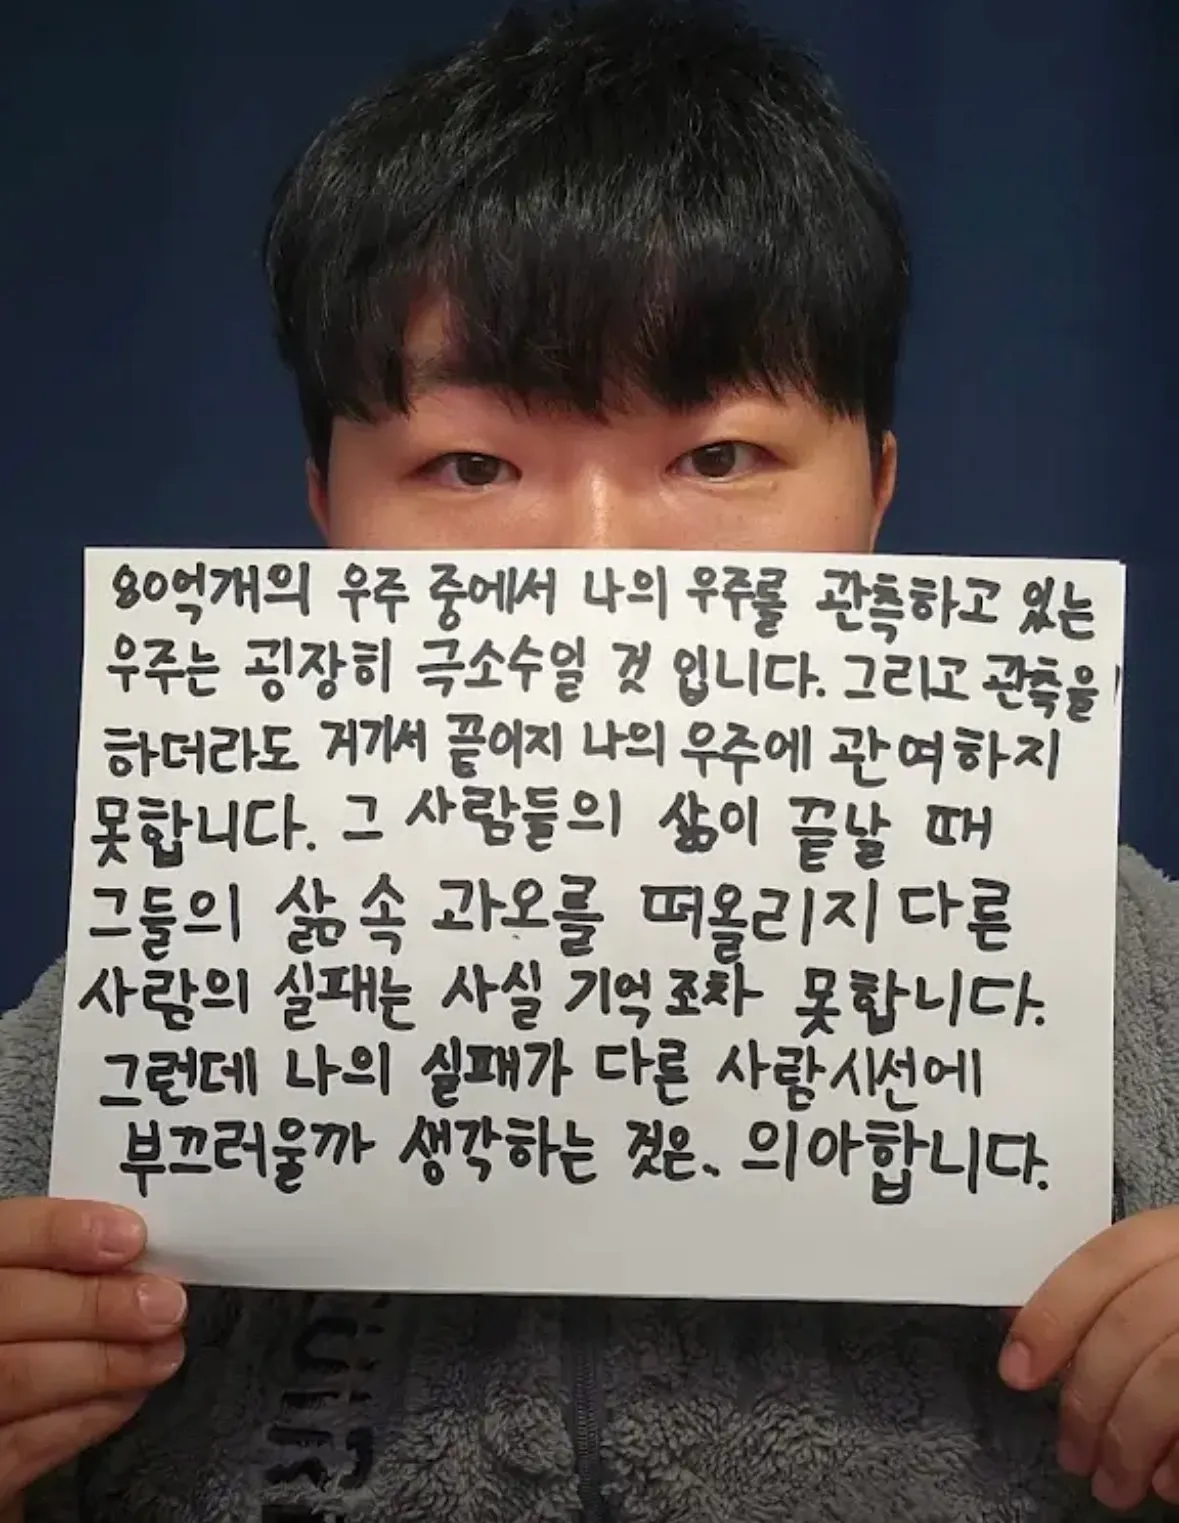 80억개의 우주 중에서 나의 우주를 관측하고 있는
우주는 굉장히 극소수일 것 입니다. 그리고 관측을
하더라도 거기서 끝이지 나의 우주에 관여하지
못합니다. 그 사람들의 삶이 끝날 때
그들의 삶 속 과오를 떠올리지 다른
사람의 실패는 사실 기억조차 못합니다.
그런데 나의 실패가 다른 사람시선에
부끄러울까 생각하는 것은.. 의아합니다.